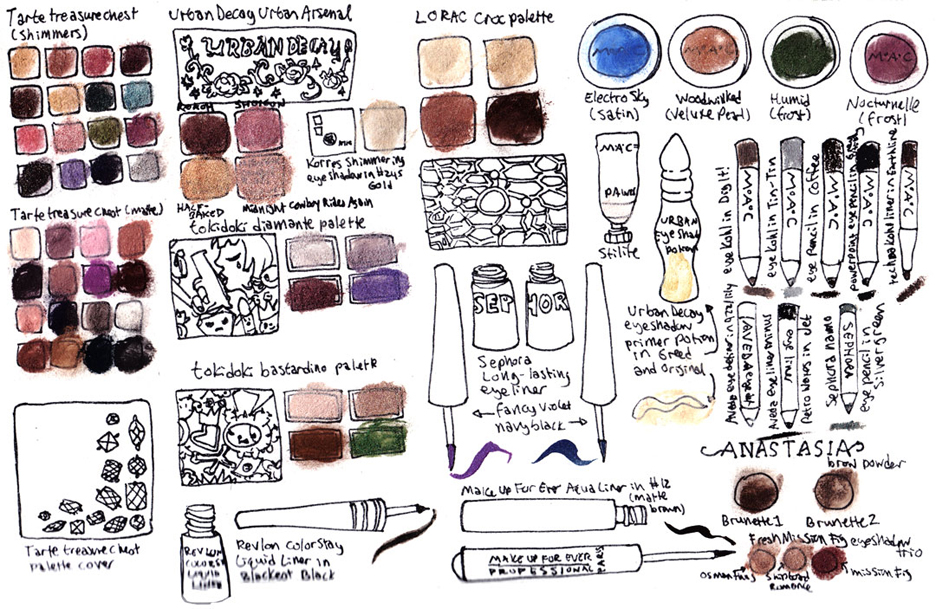 Tarte treasure chest
(shimmers)
Tarte treasure chest (matte)
Tarte treasure chest
palette cover
Urban Decay Urban Arsenal
URBAN DECAY
ROACH
SHOTGUN
HALF BAKED
Midnight Cowboy Rides Again
Korres Shimmering
eyeshadow in 27S
Gold
tokidoki diamante palette
tokidoki bastardino palette
REVLON
COLORSTAY
LIQUID
LINER
Revlon Colorstay
Liquid Liner in
Blackest Black
LORAC Croc palette
SEPHOR
Sephora
Long-lasting
eyeliner
fancy violet
navy black
Make Up For Ever Aqua Liner in #12
(matte
brown)
MAKE UP FOR EVER
PROFESSIONAL
PARIS
M·A·C
Electro Sky
(satin)
M·A·C
Woodwinked
(veluxe pearl)
Humid
(frost)
M·A·C
Nocturnelle
(frost)
M·A·C
PAINT
Stilife
URBAN
Eyeshad
Potion
Urban Decay
eyeshadow
primer potion
in Greed
and Original
eye Kohl in Dog it!
M·A·C
eye Kohl in Tron-Tron
M·A·C
eye pencil in Coffee
M·A·C
powerpoint eye pencil in
M·A·C
techna kohl liner in Earthline
M·A·C
AVEDA
Sephora nano
eye pencil in
Silver green
SEPHORA
ANASTASIA
brow powder
Brunette 1
Brunette 2
Fresh Mission Fig eyeshadow
trio
mission fig